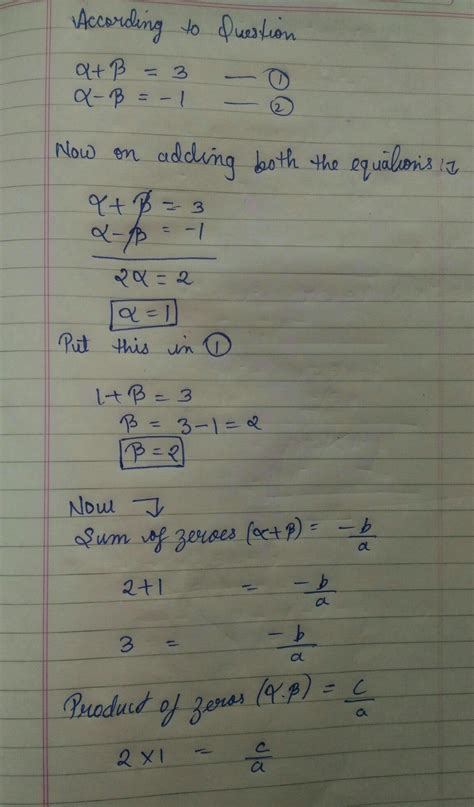 According to Question
α+β = 3 — ①
α-β = -1 — ②
Now on adding both the equations :↴
α+β = 3
α-β = -1
2α = 2
α=1
Put this in ①
1+β = 3
β = 3-1 = 2
β=2
Now ↴
Sum of zeroes (α+β) = -b/a
2+1 = -b/a
3 = -b/a
Product of zeros (α.β) = c/a
2×1 = c/a